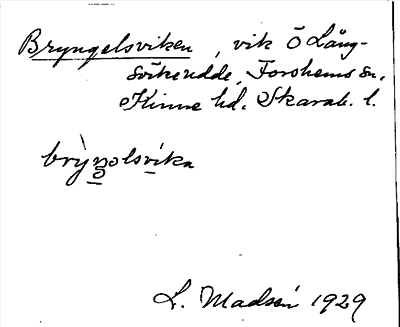 Bryngelsviken, vik Ö Lång-
svikeudde, Forshems sn.
Kinne hd. Skarab. l.
brỳŋolsvika
L. Madsén 1929